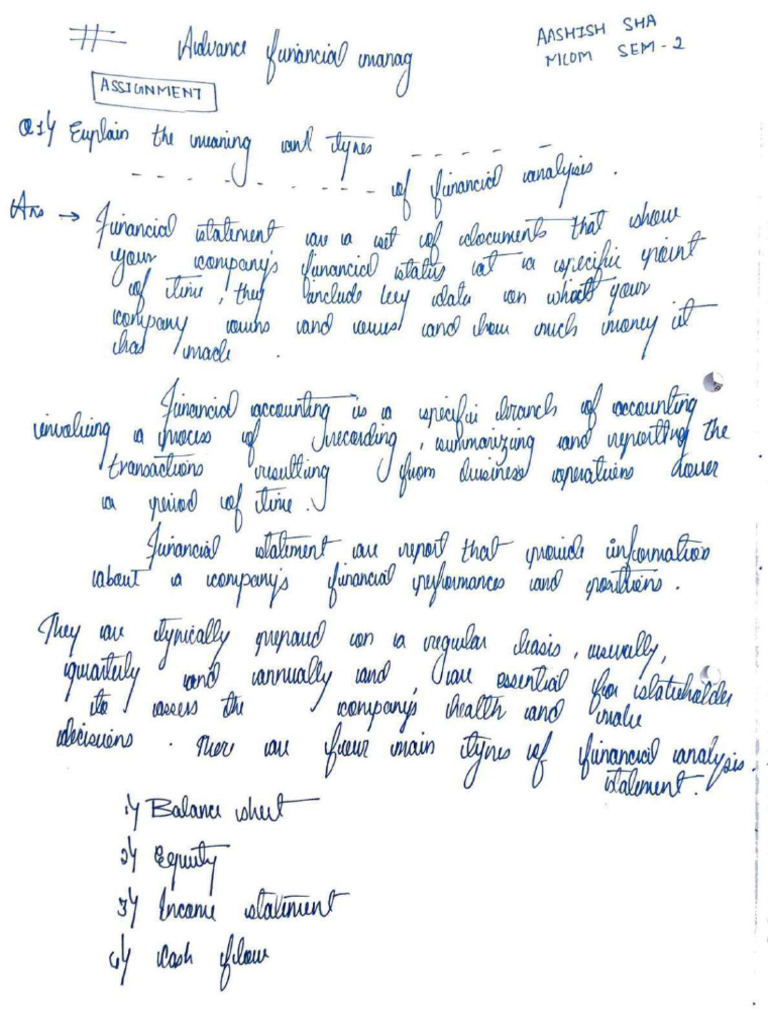 # Advance financial manag
AASHISH SHA
MCOM SEM-2
ASSIGNMENT
Q1) Explain the meaning and types - - - - -
- - - - - - - - - of financial analysis.
Ans → Financial statement are a set of documents that show
your company's financial status at a specific point
of time, they include key data on what your
company owns and owes and how much money it
has made.
Financial accounting is a specific branch of accounting
involving a process of recording, summarizing and reporting the
transactions resulting from business operations over
a period of time.
Financial statement are report that provide information
about a company's financial performances and positions.
They are typically prepared on a regular basis, usually,
quarterly and annually and, are essential for stakeholder
to assess the company's health and make
decisions. There are four main types of financial analysis
statement.
1) Balance sheet
2) Equity
3) Income statement
4) Cash flow